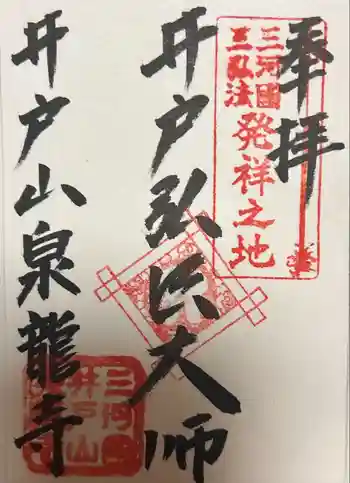 奉拝
三河國
三弘法
発祥之地
井戸弘法大師
井戸山泉龍寺
三河
井戸山